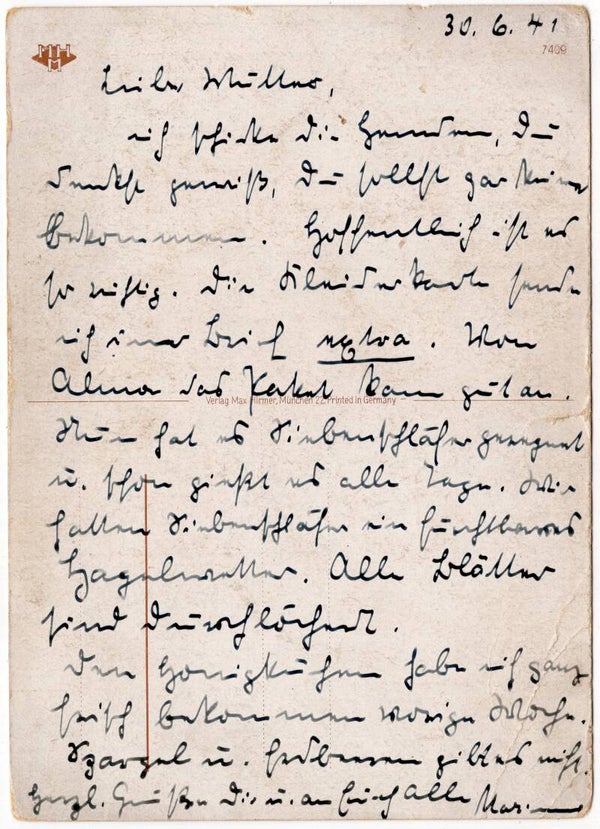 30. 6. 41
MHHM
7409
Liebe Mutter,
ich schicke die Hemden, Du
denkst gewiß, Du sollst gar keine
bekommen. Hoffentlich ist es
so richtig. Die Kleiderkarte sende
ich im Brief extra. Von
Alma das Paket kam gut an.
Verlag Max Hirmer, München 22, Printed in Germany
Nun hat es Siebenschläfer geregnet
u. schon gießt es alle Tage. Wir
hatten Siebenschläfer ein furchtbares
Hagelwetter. Alle Blätter
sind durchlöchert.
Den Honigkuchen habe ich ganz
frisch bekommen vorige Woche.
Spargel u. Erdbeeren gibt es nicht.
Herzl. Grüße Dir u. an Euch alle